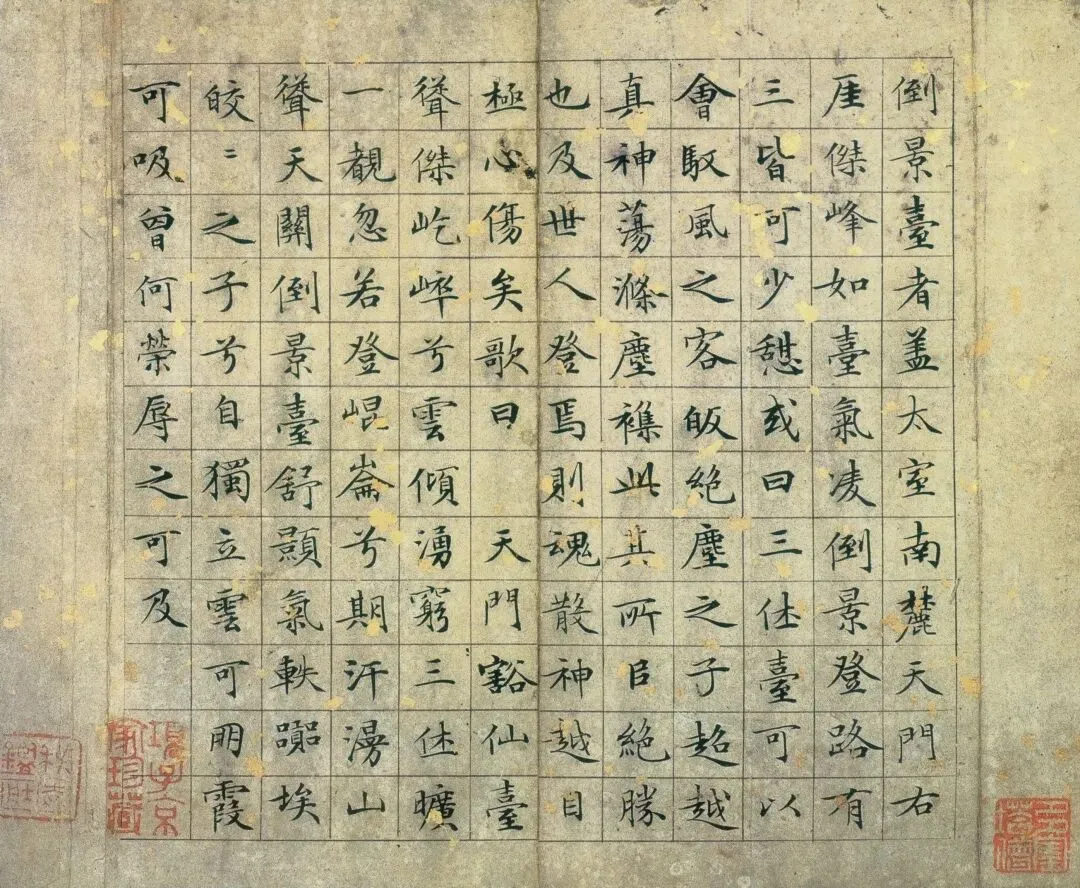 倒景臺者盖太室南麓天門右
厓傑峰如臺氣凌倒景登路有
三皆可少憩或曰三休臺可以
會馭風之客皈絶塵之子超越
真神蕩滌塵襟此其所㠯絶勝
也及世人登焉則魂散神越目
極心傷矣歌曰 天門豁仙臺
聳傑屹崪兮雲傾湧窮三休曠
一覩忽若登崐崙兮期汗漫山
聳天關倒景臺舒顥氣軼嚻埃
皎〻之子兮自獨立雲可朋霞
可吸曾何榮辱之可及
項子京
家珍藏